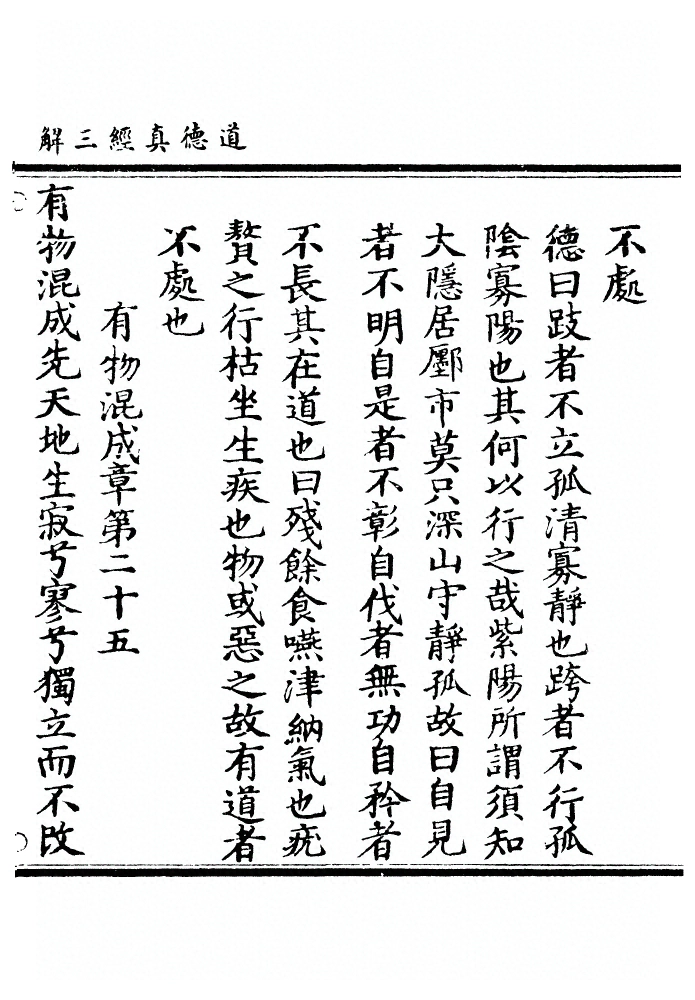 道德真經三解
不處
德曰跂者不立孤清寡靜也跨者不行孤
陰寡陽也其何以行之哉紫陽所謂須知
大隱居鄽市莫只深山守靜孤故曰自見
者不明自是者不彰自伐者無功自矜者
不長其在道也曰殘餘食嚥津納氣也疣
贅之行枯坐生疾也物或惡之故有道者
不處也
有物混成章第二十五
有物混成先天地生寂兮寥兮獨立而不改